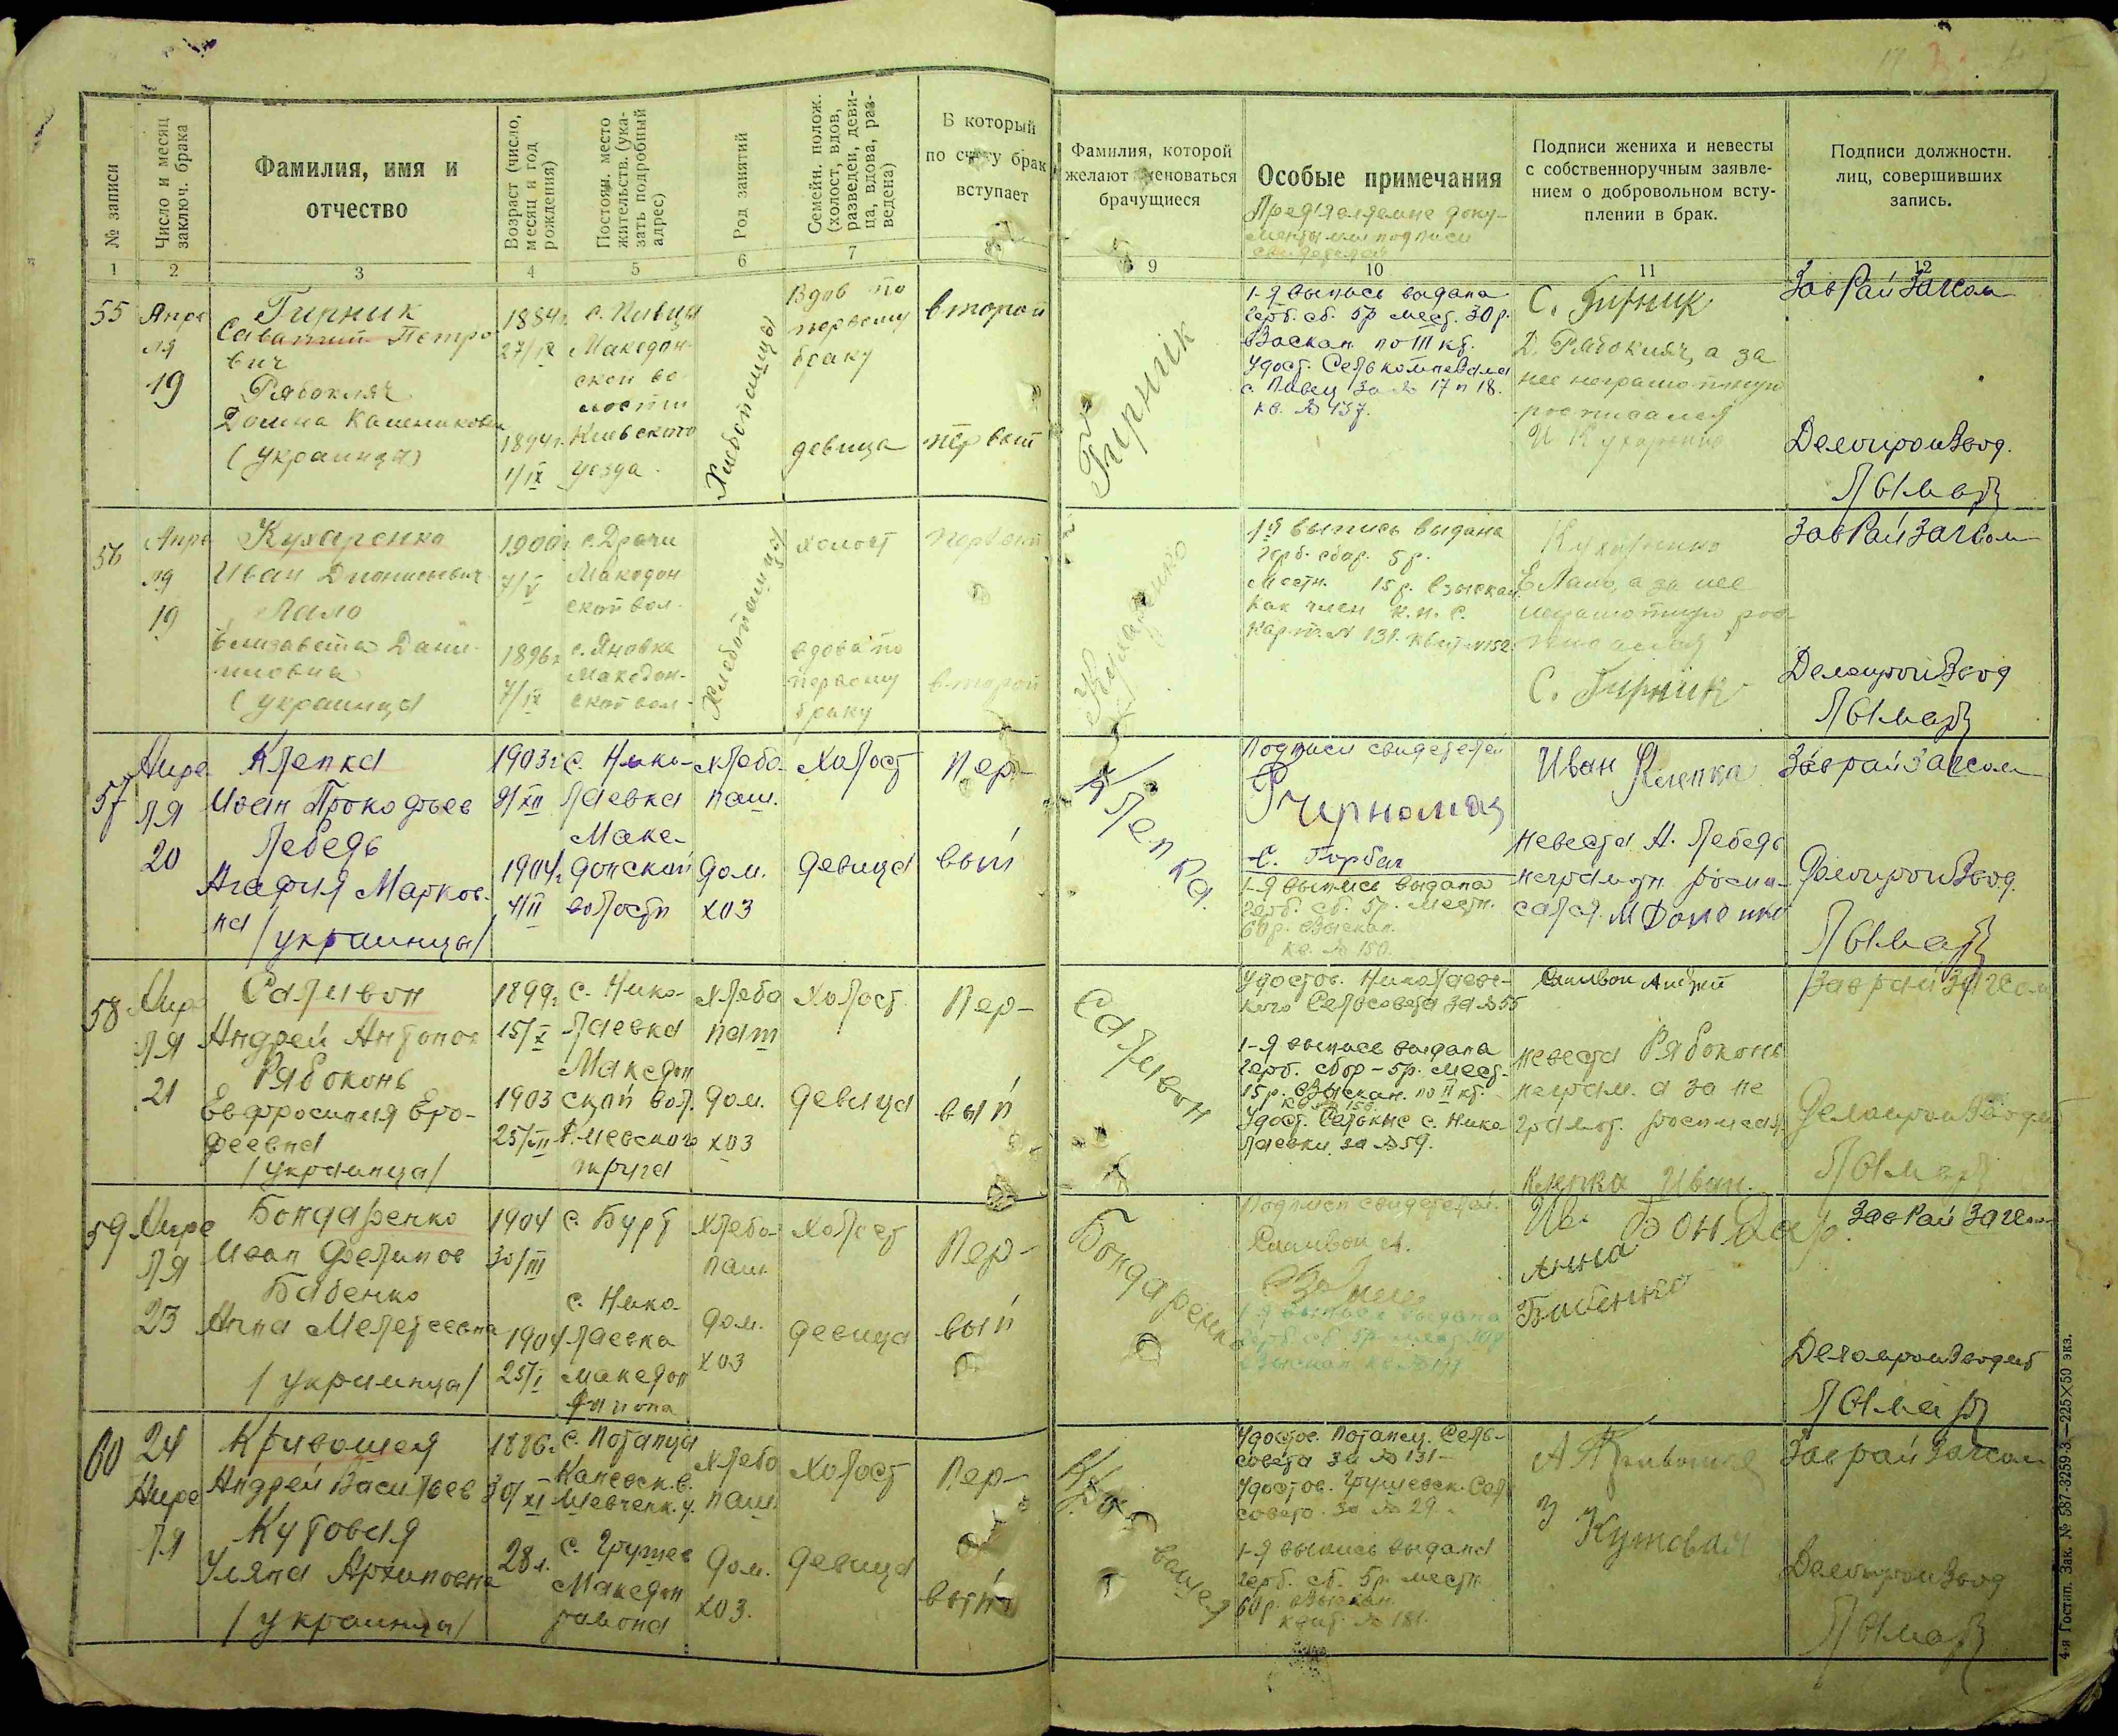 № записи
Число и месяц заключ. брака
Фамилия, имя и отчество
Возраст (число, месяц и год рождения)
Постоян. место жительств. (указать подробный адрес)
Род занятий
Семейн. полож. (холост, вдов, разведен, девица, вдова, разведена)
В который по счету брак вступает
Фамилия, которой желают именоваться брачущиеся
Особые примечания
Подписи жениха и невесты с собственноручным заявлением о добровольном вступлении в брак.
Подписи должностн. лиц, совершивших запись.
1 2 3 4 5 6 7 9 10 11 12
55
Апре
ля
19
Гирник
Петро
вич
Рябокляч
(украинцы)
1884г.
27/IX
1894г.
1/IX
Македон-
ской во-
лости
Киевского
уезда.
Хлебопашцы
Вдов по
первому
браку
девица
второй
первый
Гирнік
1-я выпись выдана
герб. сб. 5р мест. 30р.
Взыскан. по III кт.
кв. № 137.
С. Гирник
Д. Рябокляч, а за
нее неграмотную
росписался
И Кухаренко
ЗавРайЗагсом
Делопроизвод.
Лымарь
56
Апре
ля
19
Кухаренко
Иван Дионисьевич
Лало
Елизавета Дани-
иловна
(украинцы)
1900г
7/V
1896г
7/IX
с. Драчи
Македон
ской вол.
с. Яновка
Македон-
ской вол.
Хлебопашцы
холост
вдова по
первому
браку
первый
второй
Кухаренко
1я выпись выдана
герб. сбор. 5р.
Местн. 15р. взыскан
как член к.н.с.
Кухаренко
Е Лало, а за нее
неграмотную рос-
писался
С. Гирник
ЗавРайЗагсом
Делопроизвод
Лымарь
57
Апре
ля
20
Клепка
Иван Прокофьев
Лебедь
Агафия Марков-
на
/украинцы/
1903г
9/XII
1904г
4/II
с. Нико-
лаевка
Маке-
донской
волости
хлебо-
паш.
дом.
хоз
Холост
девица
Пер-
вый
Клепка
Подписи свидетелей
С. Горбач
1-я выпись выдана
герб. сб. 5р. местн.
60р. взыскан.
кв. № 150.
Иван Клепка
невеста А. Лебедь
неграмотн. роспи-
сался. М Доленко
ЗаврайЗагсом
Делопроизвод.
Лымарь
58
Апре
ля
21
Саливон
Андрей Антонов
Рябоконь
Евфросиния Еро-
феевна
/украинцы/
1899г
15/X
1903
25/VII
с. Нико-
лаевка
Македон
ской вол.
округа
хлебо
паш
дом.
хоз
Холост.
девица
Пер-
вый
Саливон
Удостов. Николаевс-
кого Сельсовета за №55
1-я выпись выдана
герб. сбор - 5р. мест-
15р. взыскан. по II кт.
лаевки за №59.
Саливон Андрей
невеста Рябоконь
неграм. а за не
грамот. росписался
Клепка Иван.
ЗаврайЗагсом
Делопроизводит
Лымарь
59
Апре
ля
23
Бондаренко
Иван Филипов
Бабенко
Анна Мелетеевна
/украинцы/
1904
30/III
1904
25/I
с. Бурт
с. Нико-
лаевка
македон
района
Хлебо-
паш.
дом.
хоз
Холост
девица
Пер-
вый
Бондаренко
Подписи свидетелей.
Саливон А.
1-я выпись выдана
Ив. Бондар.
Анна
Бабенко
ЗавРайЗагсом
Делопроизводит
Лымарь
60
24
Апре
ля
Кривошея
Андрей Васильев
Кутовая
Уляна Архиповна
/украинцы/
1886г.
30/XI
28л.
с. Потапцы
Каневск. в.
Шевченк. у.
с. Грушев
Македон
района
хлебо
паш.
дом.
хоз.
Холост
девица
Пер-
вый
Удостов. Потапец. Сель-
совета за №131-
Удостов. Грушевск. Сель
совета. за №29.
1-я выпись выдана
герб. сб. 5р. местн.
60р. взыскан.
квит. № 181.
А Кривошея
У Кутовая
ЗаврайЗагсом
Делопроизвод
Лымарь
4-я Гостип. Зак. № 587-3259-3.—225×50 экз.